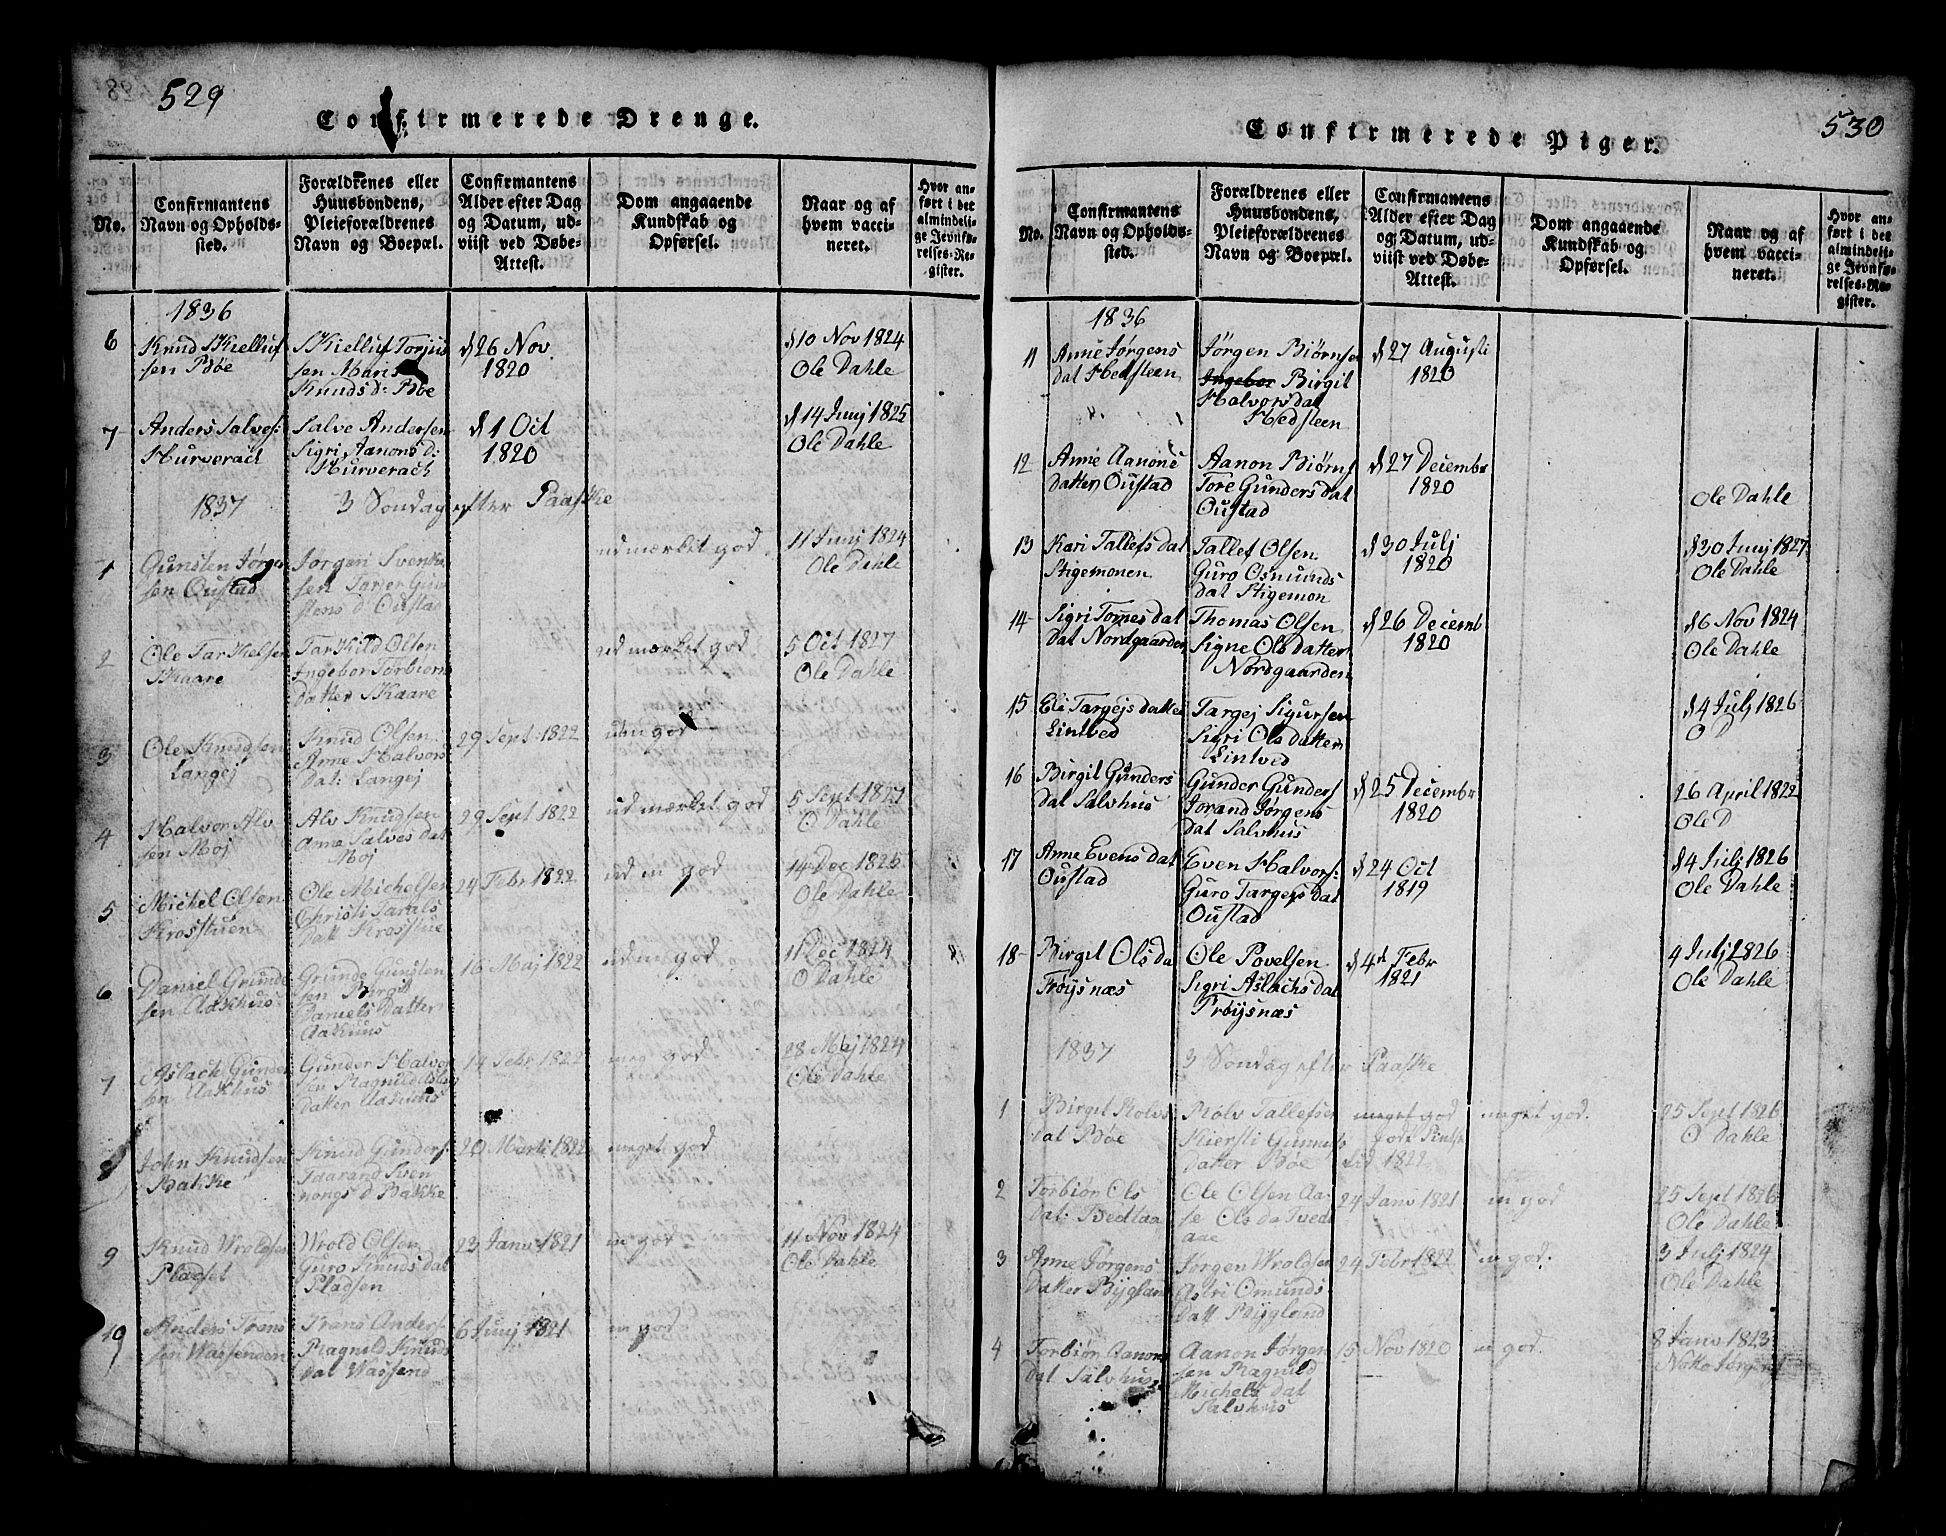 529
Confirmerede Drenge.
No.
Confirmantens
Navn og Opholds-
sted.
Forældrenes eller
Huusbondens,
Pleieforældrenes
Navn og Boepæl.
Confirmantens
Alder efter Dag
og Datum, ud-
viist ved Døbe-
Attest.
Dom angaaende
Kundskab og
Opførsel.
Naar og af
hvem vacci-
neret.
Hvor an-
ført i det
almindeli-
ge Jevnfø-
relses-Re-
gister.
1836
6
Knud Skielluf
sen Bøe
Skielluf Torjus
sen Maris
Knuds d: Bøe
d 26 Nov.
1820
d 10 Nov 1824
Ole Dahle
7
Anders Salves:
Hurverach
Salve Andersen
Sigri Aanons d:
Hurverach
d 1 Oct
1820
d 14 Junj 1825
Ole Dahle
1837
3 Søndag efter Paaske
1
Gunsten Jørgen
sen Oustad
Jørgen Svenke
sen Tarjer Gun
stens d Oustad
udmærket god
11 Junj 1824
Ole Dahle
2
Ole Tarkelsen
Skaare
Tarkild Olsen
Ingebor Torbiørns
Datter Skaare
udmærket god
5 Oct 1827
Ole Dahle
3
Ole Knudsen
Langej
Knud Olsen
Anne Halvors
Dat: Langej
29 Sept 1822
udm god
4
Halvor Alv
sen Moj
Alv Knudsen
Anne Salves dat
Moj
29 Sept 1822
udmærket god
5 Sept 1827
O Dahle
5
Michel Olsen
Krosstuen
Ole Michelsen
Christi Tarals
Datt Krosstue
24 Febr 1822
ud m god
14 Dec 1826
Ole Dahle
6
Daniel Grunde
sen Aakhus
Grunde Gunsten
sen Birgit
Daniels Datter
Aakhuus
16 Maj 1822
ud m god
11 Dec 1824
O Dahle
7
Aslach Gunder
sen Aakhus
Gunder Halvor
sen Ragnild
Datter Aakhuus
14 Febr 1822
meg god
28 Maj 1824
Ole Dahle
8
John Knudsen
Bakke
Knud Gunders:
Taarand Sven
nongs d Bakke
20 Marti 1822
meget god
9
Knud Wroldsen
Pladset
Wrold Olsen
Guro Knuds dat
Pladsen
23 Janu 1821
m god
11 Nov 1824
Ole Dahle
10
Anders Trons
sen Wassenden
Trons Anders
Ragnild Knuds
dat Wassend
6 Junj 1821
m god
530
Confirmerede Piger.
No.
Confirmantens
Navn og Opholds-
sted.
Forældrenes eller
Huusbondens,
Pleieforældrenes
Navn og Boepæl.
Confirmantens
Alder efter Dag
og Datum, ud-
viist ved Døbe-
Attest.
Dom angaaende
Kundskab og
Opførsel.
Naar og af
hvem vacci-
neret.
Hvor an-
ført i det
almindeli-
ge Jevnfø-
relses-Re-
gister.
1836
11
Anne Jørgens
dat Hedsteen
Jørgen Biørnsen
Ingebor Birgit
Halvors dat
Hedsteen
d 27 Augusti
1820
12
Anne Aanons
Datter Oustad
Aanon Biørns
Tore Gunders dat
Oustad
d 27 Decembr
1820
Ole Dahle
13
Kari Tallefs dat
Stigemonen
Tallef Olsen
Guro Osmunds
dat Stigemon
d 30 Julj
1820
d 30 Junj 1827
Ole Dahle
14
Sigri Tomes dat
Dat Nordgaarden
Thomas Olsen
Signe Ols datter
Nordgaarden
d 26 Decemb
1820
d 6 Nov 1824
Ole Dahle
15
Eli Targejs datter
Lintved
Targej Sigursen
Sigri Ols datter
Lintved
d 4 Julj 1826
O D
16
Birgit Gunders
dat Salvhus
Gunder Gunders
Jorand Jørgens
dat Salvhus
d 25 Decembr
1820
26 April 1822
Ole D
17
Anne Evens dat
Oustad
Even Halvors:
Guro Targejs dat
Oustad
d 24 Oct
1819
d 4 Julj 1826
Ole Dahle
18
Birgit Ols da
Frøysnæs
Ole Povelsen
Sigri Aslachs dat
Frøysnæs
d 4 Febr
1821
4 Julj 1826
Ole Dahle
1837
3 Søndag efter Paaske
1
Birgit Rolvs
dat Bøe
Rolv Tallefsen
Kiersti Gunnuls
Datter Bøe
meget god
1822
meget god.
25 Sept 1826
O Dahle
2
Torbiør Ols
dat: Tvedtaa
Ole Olsen Aa
se Ols da Tvedt
aae
24 Janv 1821
m god
25 Sept 1826
Ole Dahle
3
Anne Jørgens
Datter Bygland
Jørgen Wroldsen
Astri Omunds
Datt Bygland
24 Febr 1822
m god.
3 Julj 1824
Ole Dahle
4
Torbiør Aanons
dat Salvhus
Aanon Jørgen
sen Ragnild
Michels dat
Salvhus
15 Nov 1820
m god.
8 Janv 1823